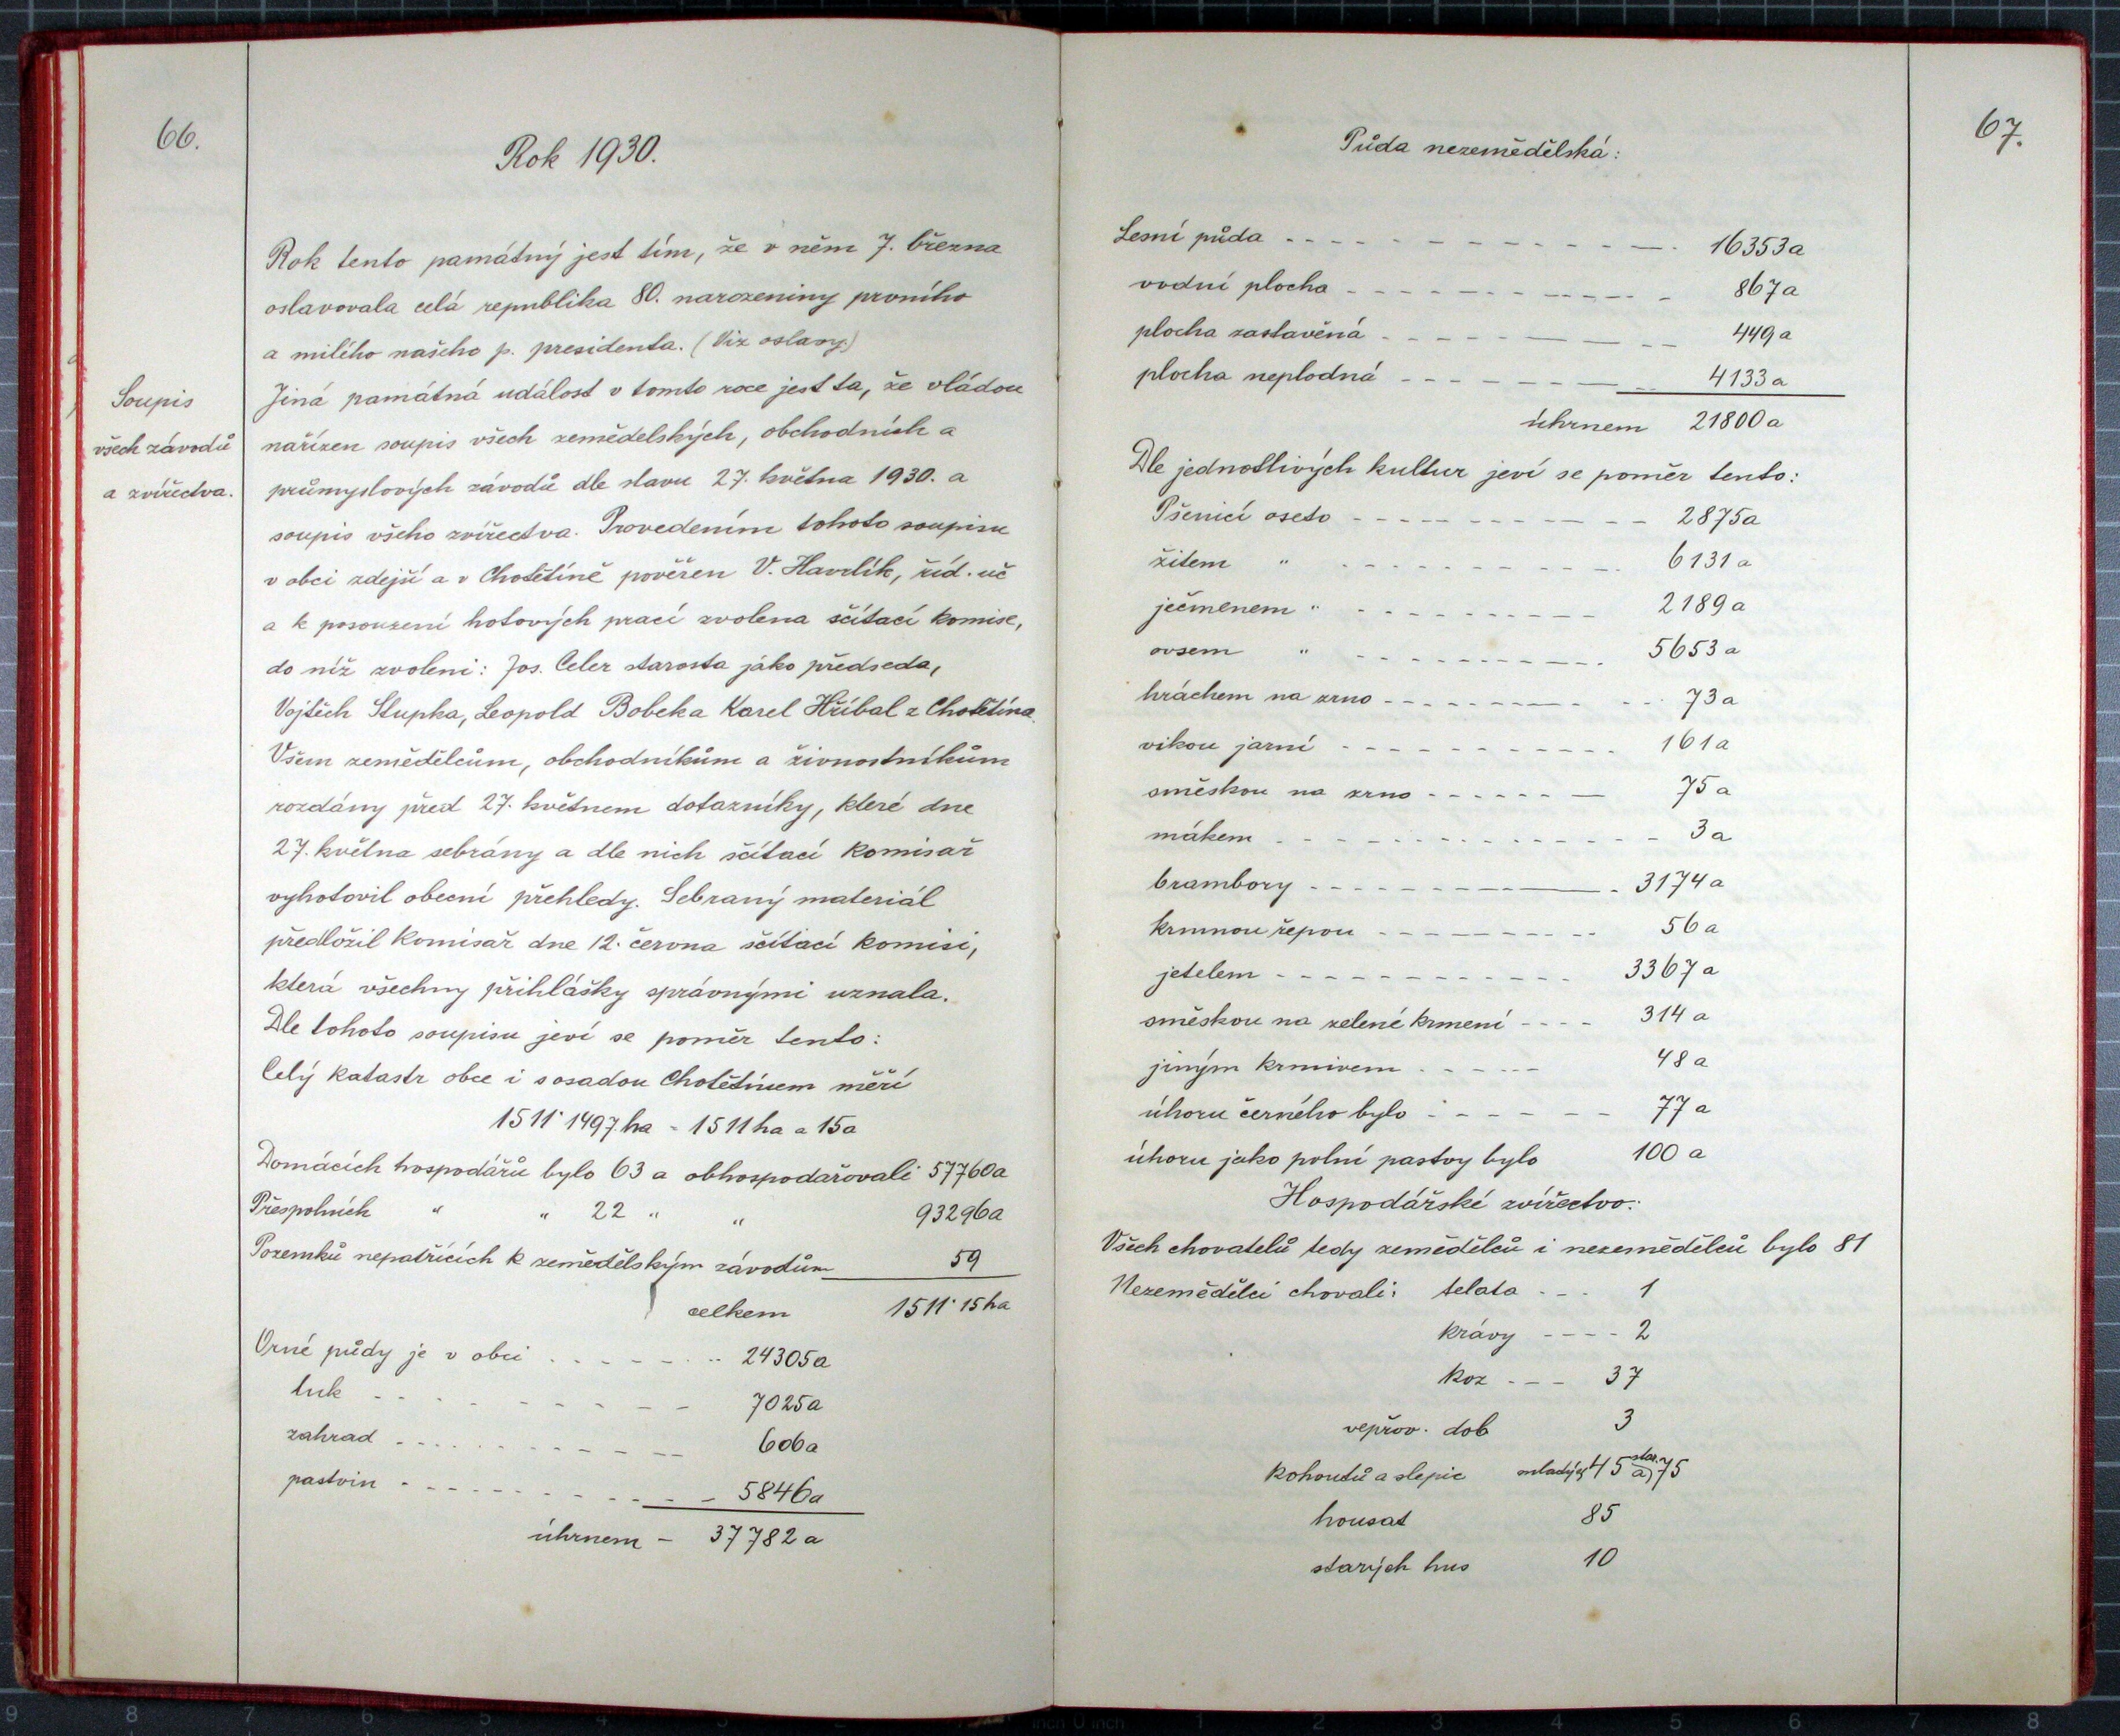 66.
Rok 1930.
Soupis
všech závodů
a zvířectva.
Rok tento památný jest tím, že v něm 7. března
oslavovala celá republika 80. narozeniny prvního
a milého našeho p. presidenta. (Viz oslavy.)
Jiná památná událost v tomto roce jest ta, že vládou
nařízen soupis všech zemědelských, obchodních a
průmyslových závodů dle stavu 27. května 1930. a
soupis všeho zvířectva. Provedením tohoto soupisu
v obci zdejší a v Chotětíně pověřen V. Havrlík, říd. uč
a k posouzení hotových prací zvolena sčítací komise,
do níž zvoleni: Jos. Celer starosta jako předseda,
Vojtěch Stupka, Leopold Bobek a Karel Hříbal z Chotětína.
Všem zemědělcům, obchodníkům a živnostníkům
rozdány před 27. květnem dotazníky, které dne
27. května sebrány a dle nich sčítací komisař
vyhotovil obecní přehledy. Sebraný materiál
předložil komisař dne 12. června sčítací komisi,
která všechny přihlášky správnými uznala.
Dle tohoto soupisu jeví se poměr tento:
Celý katastr obce i s osadou Chotětínem měří
1511·1497 ha = 1511 ha a 15a
Domácích hospodářů bylo 63 a obhospodařovali 57760a
Přespolních " " 22 " " 93296a
Pozemků nepatřících k zemědělským závodům 59
celkem 1511·15 ha
Orné půdy je v obci - - - - - - 24305a
luk - - - - - - - - 7025a
zahrad - - - - - - - - 606a
pastvin - - - - - - - - 5846a
úhrnem - 37782 a
67.
Půda nezemědělská:
Lesní půda - - - - - - - - 16353a
vodní plocha - - - - - - - - 867a
plocha zastavěná - - - - - - - - 449a
plocha neplodná - - - - - - - - 4133a
úhrnem 21800a
Dle jednotlivých kultur jeví se poměr tento:
Pšenicí oseto - - - - - - - - 2875a
žitem " - - - - - - - - 6131a
ječmenem " - - - - - - - - 2189a
ovsem " - - - - - - - - 5653a
hráchem na zrno - - - - - - - - 73a
vikou jarní - - - - - - - - 161a
směskou na zrno - - - - - - - 75a
mákem - - - - - - - - 3a
brambory - - - - - - - - 3174a
krmnou řepou - - - - - - - - 56a
jetelem - - - - - - - - 3367a
směskou na zelené krmení - - - - 314a
jiným krmivem - - - - - 48a
úhoru černého bylo - - - - - - 77a
úhoru jako polní pastvy bylo 100a
Hospodářské zvířectvo:
Všech chovatelů tedy zemědělců i nezemědělců bylo 81
Nezemědělci chovali: telata - - - 1
krávy - - - - 2
koz - - - 37
vepřov. dob 3
kohoutů a slepic mladých 45 a star. 75
housat 85
starých hus 10